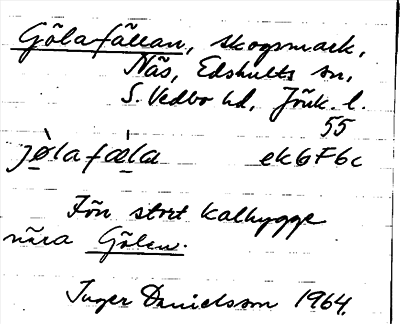 Gölafällan, skogsmark,
Näs, Edshults sn,
S. Vedbo hd, Jönk. l.
55
jø̀lafæ̀la ek6F6c
Fön stort kalhygge
nära Gölen.
Inger Danielsson 1964.